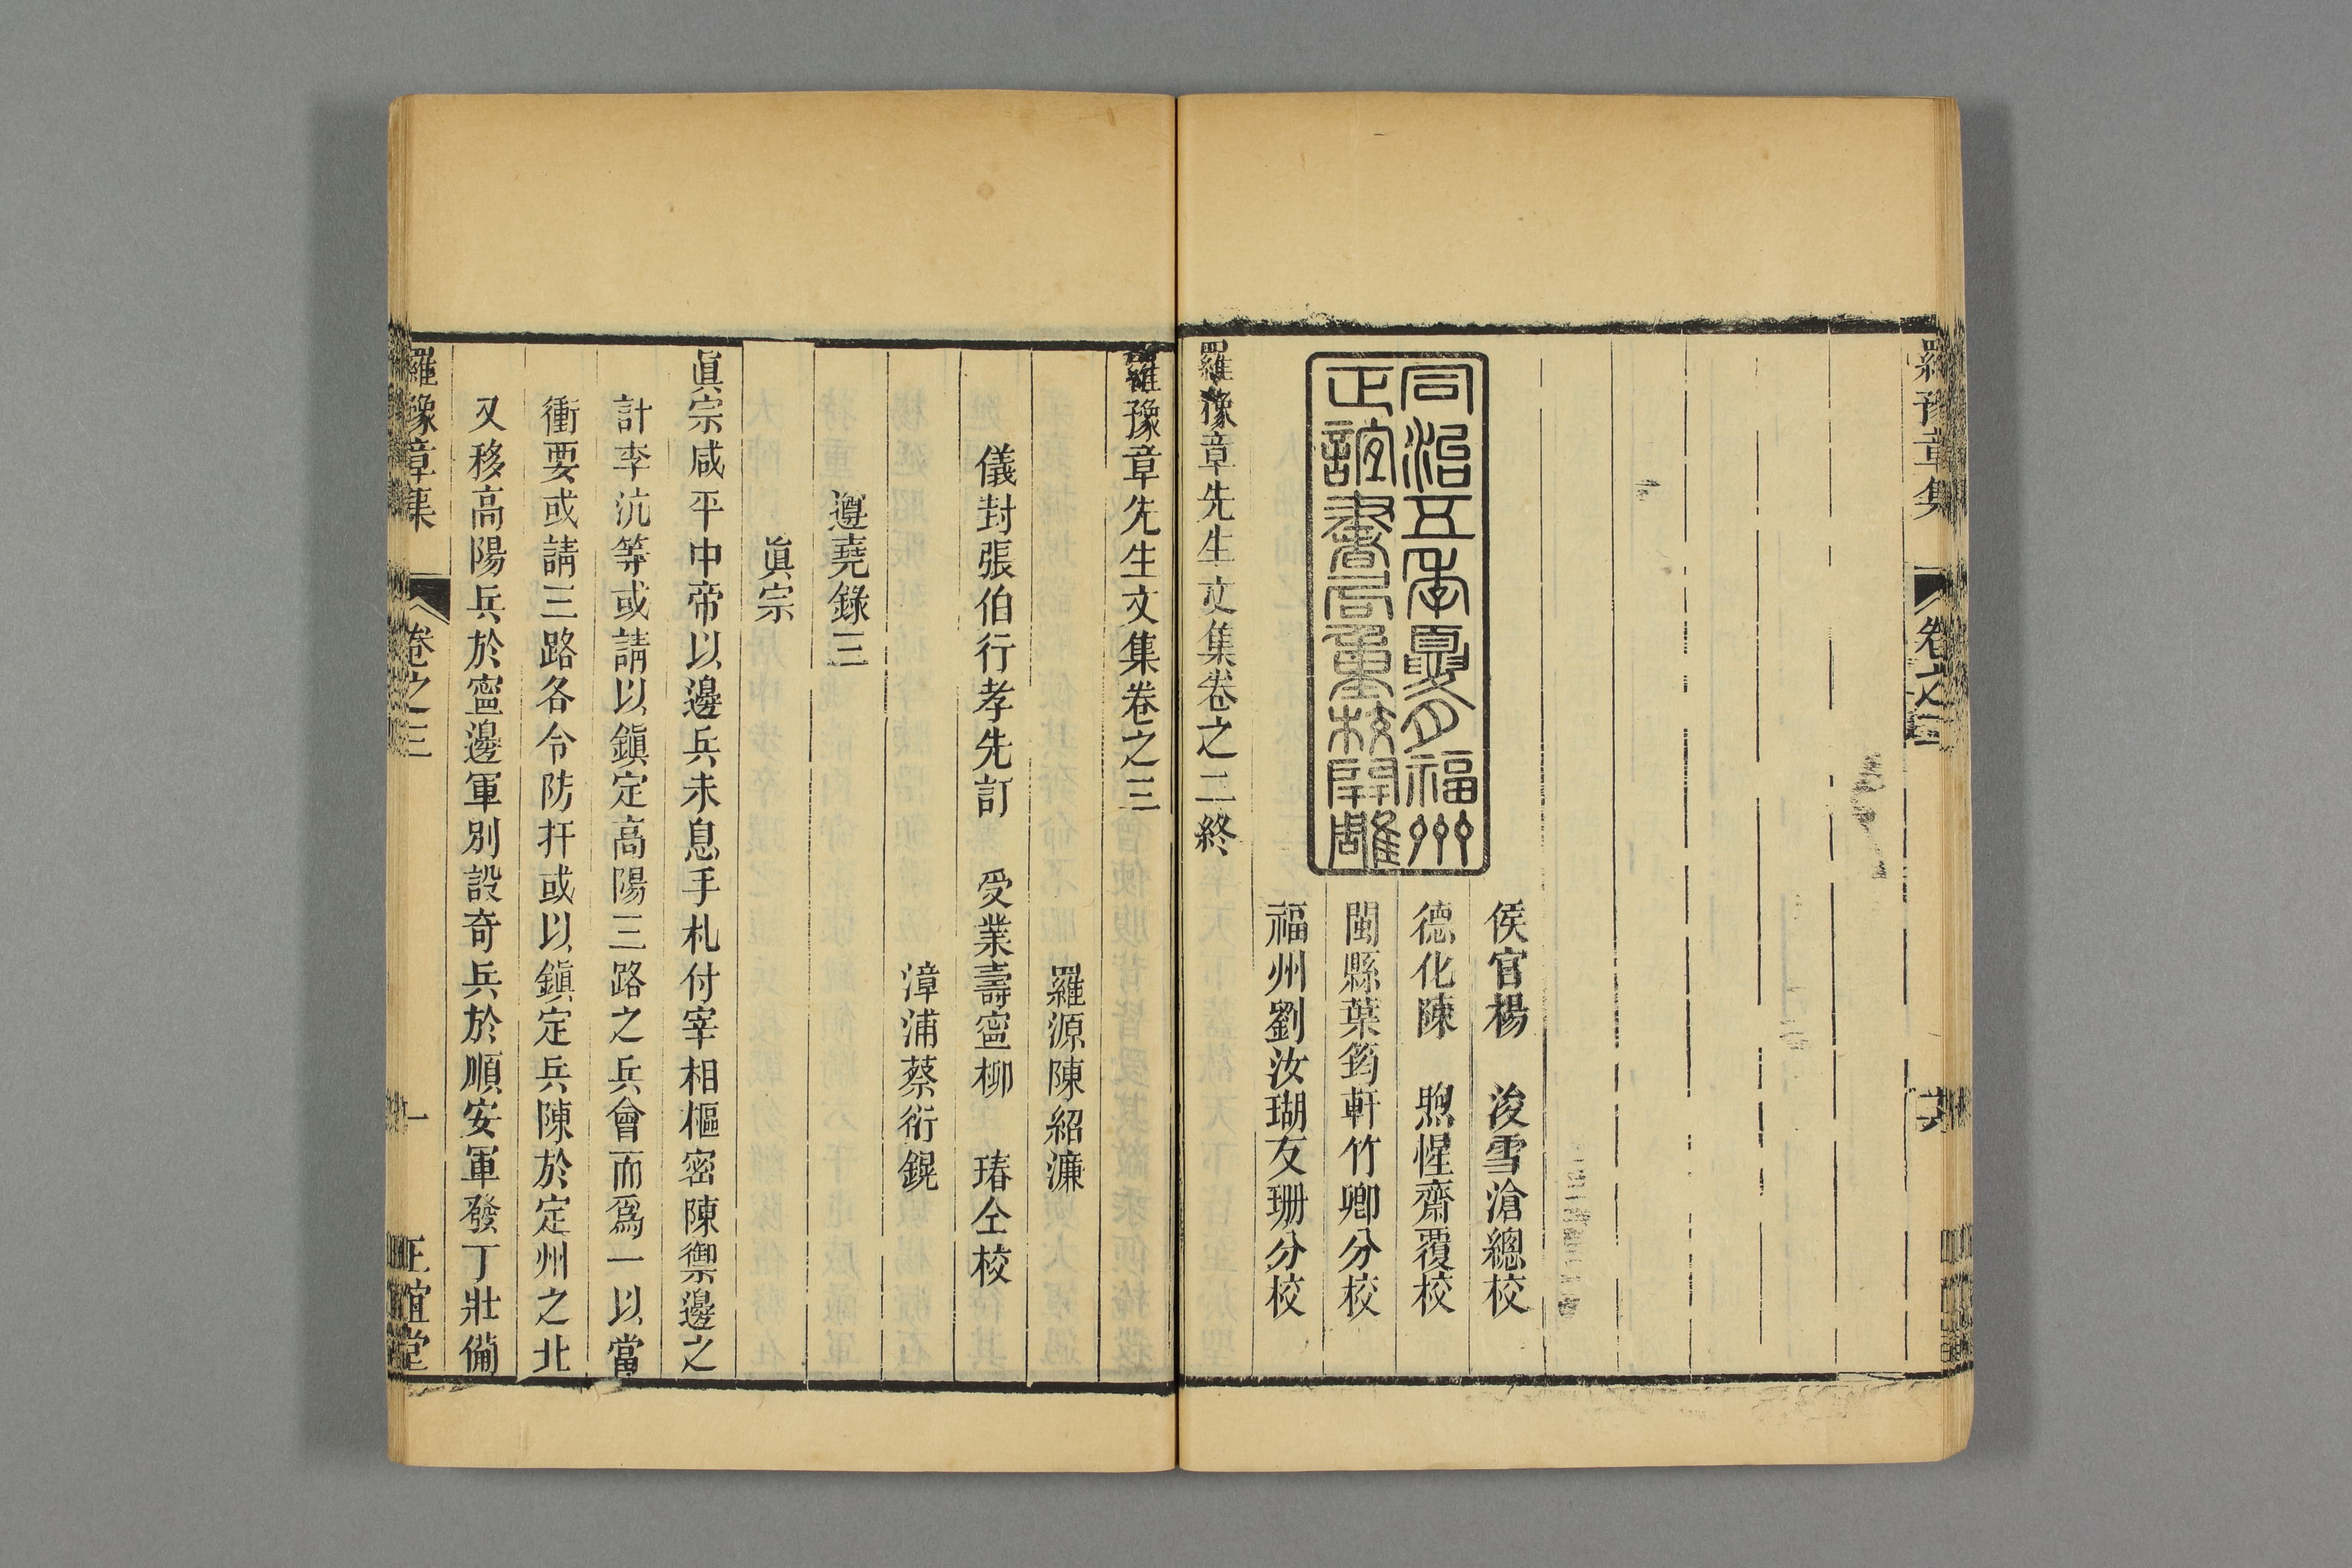 羅豫章集
卷之二
侯官楊　浚雪滄總校
德化陳　煦惺齋覆校
閩縣葉筠軒竹卿分校
福州劉汝瑚友珊分校
同治五年夏月福州
正誼書局重校開雕
羅豫章先生文集卷之二終
羅豫章先生文集卷之三
羅源陳紹濂
儀封張伯行孝先訂　受業壽寧柳　瑃仝校
漳浦蔡衍鎤
遵堯錄三
眞宗
眞宗咸平中帝以邊兵未息手札付宰相樞密陳禦邊之
計李沆等或請以鎭定高陽三路之兵會而爲一以當
衝要或請三路各令防扞或以鎭定兵陳於定州之北
又移高陽兵於寧邊軍別設奇兵於順安軍發丁壯備
羅豫章集
卷之三
一
正誼堂